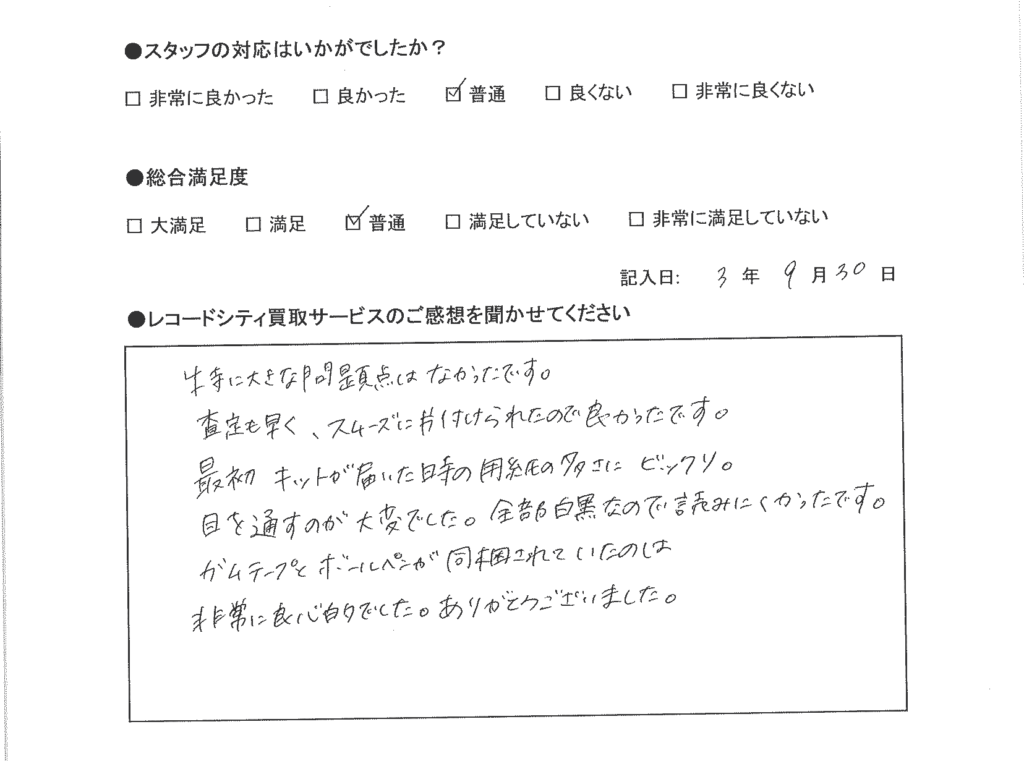 ●スタッフの対応はいかがでしたか？
□ 非常に良かった □ 良かった ☑ 普通 □ 良くない □ 非常に良くない
●総合満足度
□ 大満足 □ 満足 ☑ 普通 □ 満足していない □ 非常に満足していない
記入日: 3 年 9 月 30 日
●レコードシティ買取サービスのご感想を聞かせてください
特に大きな問題点はなかったです。
査定も早く、スムーズに片付けられたので良かったです。
最初 キットが届いた時の用紙の多さに ビックリ。
目を通すのが大変でした。全部白黒なので読みにくかったです。
ガムテープとボールペンが同梱されていたのは
非常に良心的でした。ありがとうございました。